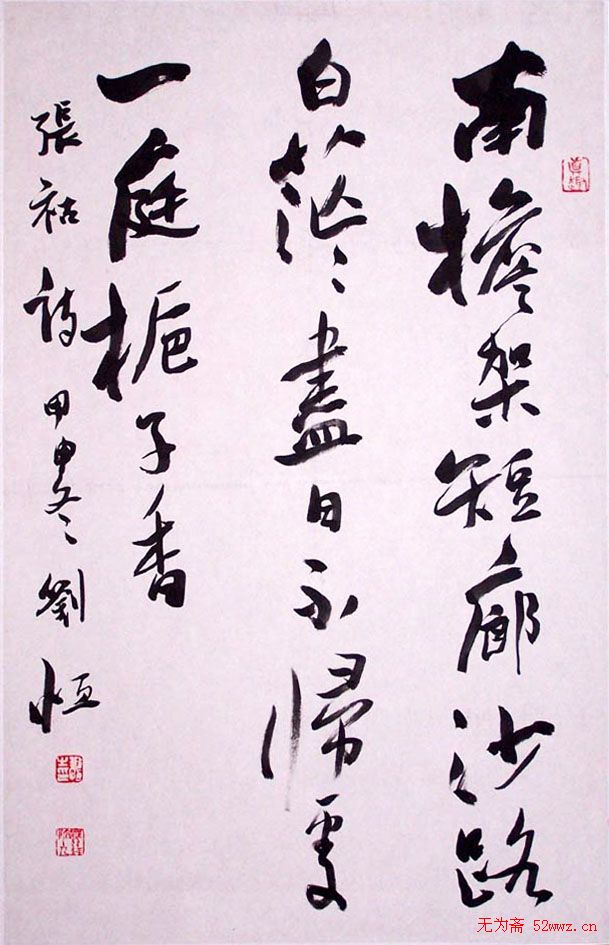 南檐架短廊沙路
白茫〻盡日不歸處
一庭栀子香
張祜詩甲申冬〻劉恒
无为斋 52wwz.cn